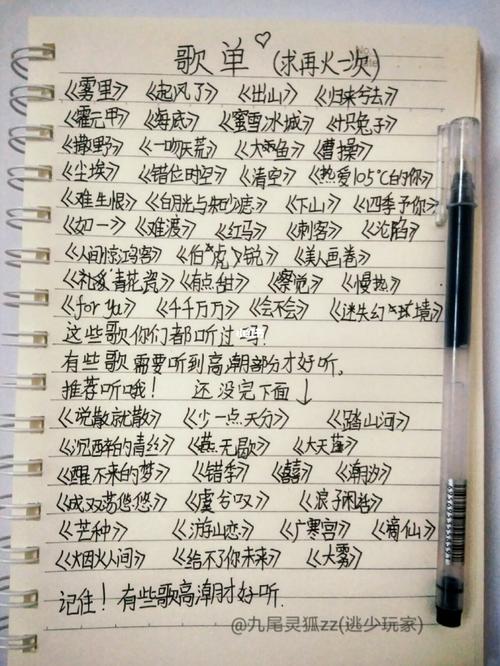 歌单♡(求再火一次)
《雾里》 《起风了》 《出山》 《归来兮去》
《霍元甲》 《海底》 《蜜雪冰城》 《十只兔子》
《撒野》 《一吻天荒》 《大鱼》 《曹操》
《尘埃》 《错位时空》 《清空》 《热爱105°C的你》
《难生恨》 《白月光与朱砂痣》 《下山》 《四季予你》
《如一》 《难渡》 《红马》 《刺客》 《沦陷》
《人间惊鸿客》 《伯虎说》 《美人画卷》
《礼爱青花瓷》 《有点甜》 《察觉》 《慢热》
《for ya》 《千千万万》 《会不会》 《迷失幻境》
这些歌你们都听过吗?
有些歌需要听到高潮部分才好听,
推荐听哦! 还没完下面↓
《说散就散》 《少一点天分》 《踏山河》
《沉醉的青丝》 《燕无歇》 《大天蓬》
《醒不来的梦》 《错季》 《囍》 《潮汐》
《成双荡悠悠》 《虚谷叹》 《浪子闲话》
《芒种》 《游山恋》 《广寒宫》 《谪仙》
《烟火人间》 《给不了你未来》 《大雾》
记住!有些歌高潮才好听.
@九尾灵狐zz(逃少玩家)